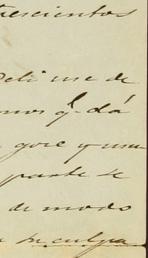 trescientos
use de
mos q. dá
goce y usu
parte se
de modo
su culpa